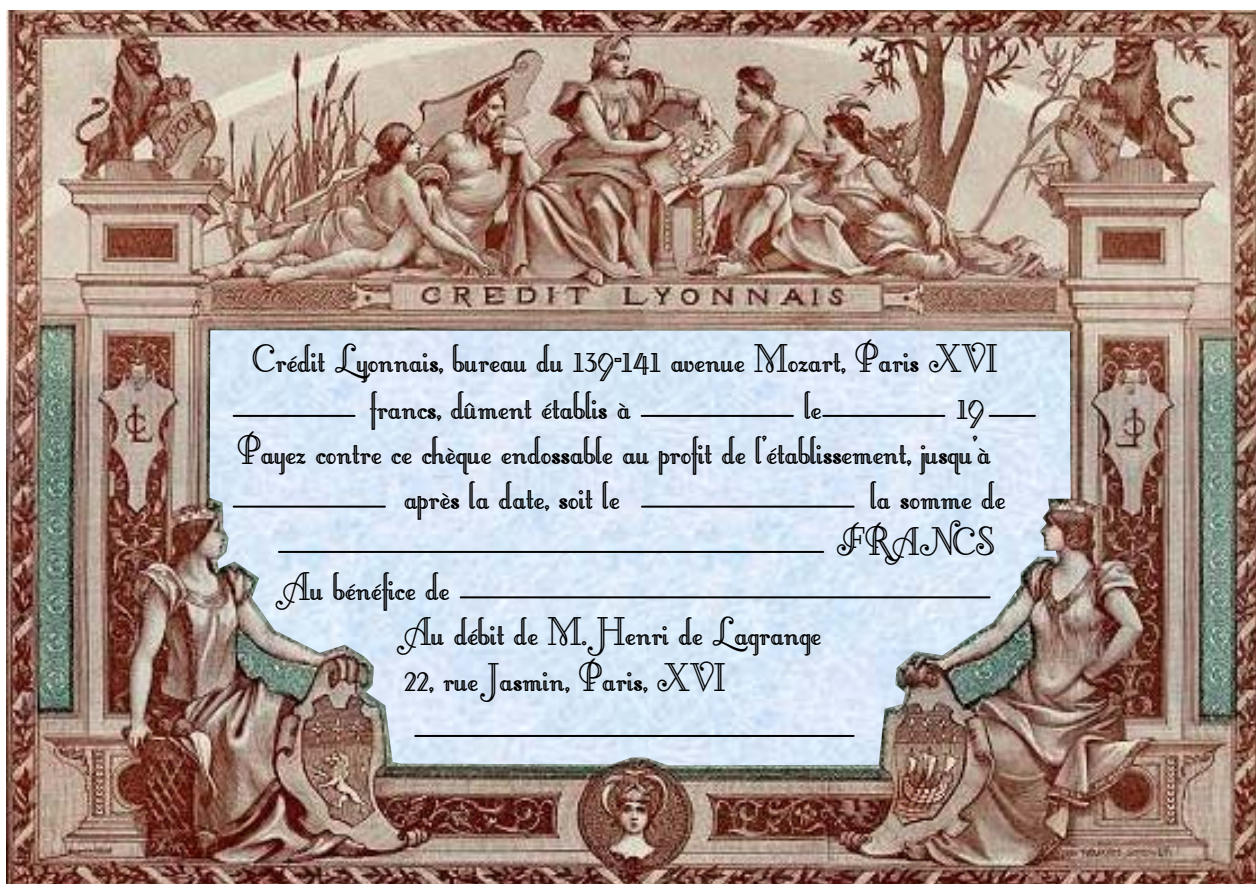 CREDIT LYONNAIS
Crédit Lyonnais, bureau du 139-141 avenue Mozart, Paris XVI
francs, dûment établis à le 19
Payez contre ce chèque endossable au profit de l'établissement, jusqu'à
après la date, soit le la somme de
FRANCS
Au bénéfice de
Au débit de M. Henri de Lagrange
22, rue Jasmin, Paris, XVI